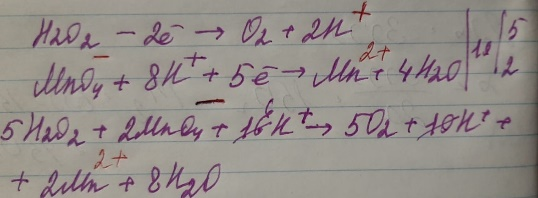 H₂O₂ − 2ē → O₂ + 2H⁺ | | 5
MnO₄⁻ + 8H⁺ + 5ē → Mn²⁺ + 4H₂O | 10 | 2
5H₂O₂ + 2MnO₄⁻ + 16⁶H⁺ → 5O₂ + 10H⁺ +
+ 2Mn²⁺ + 8H₂O